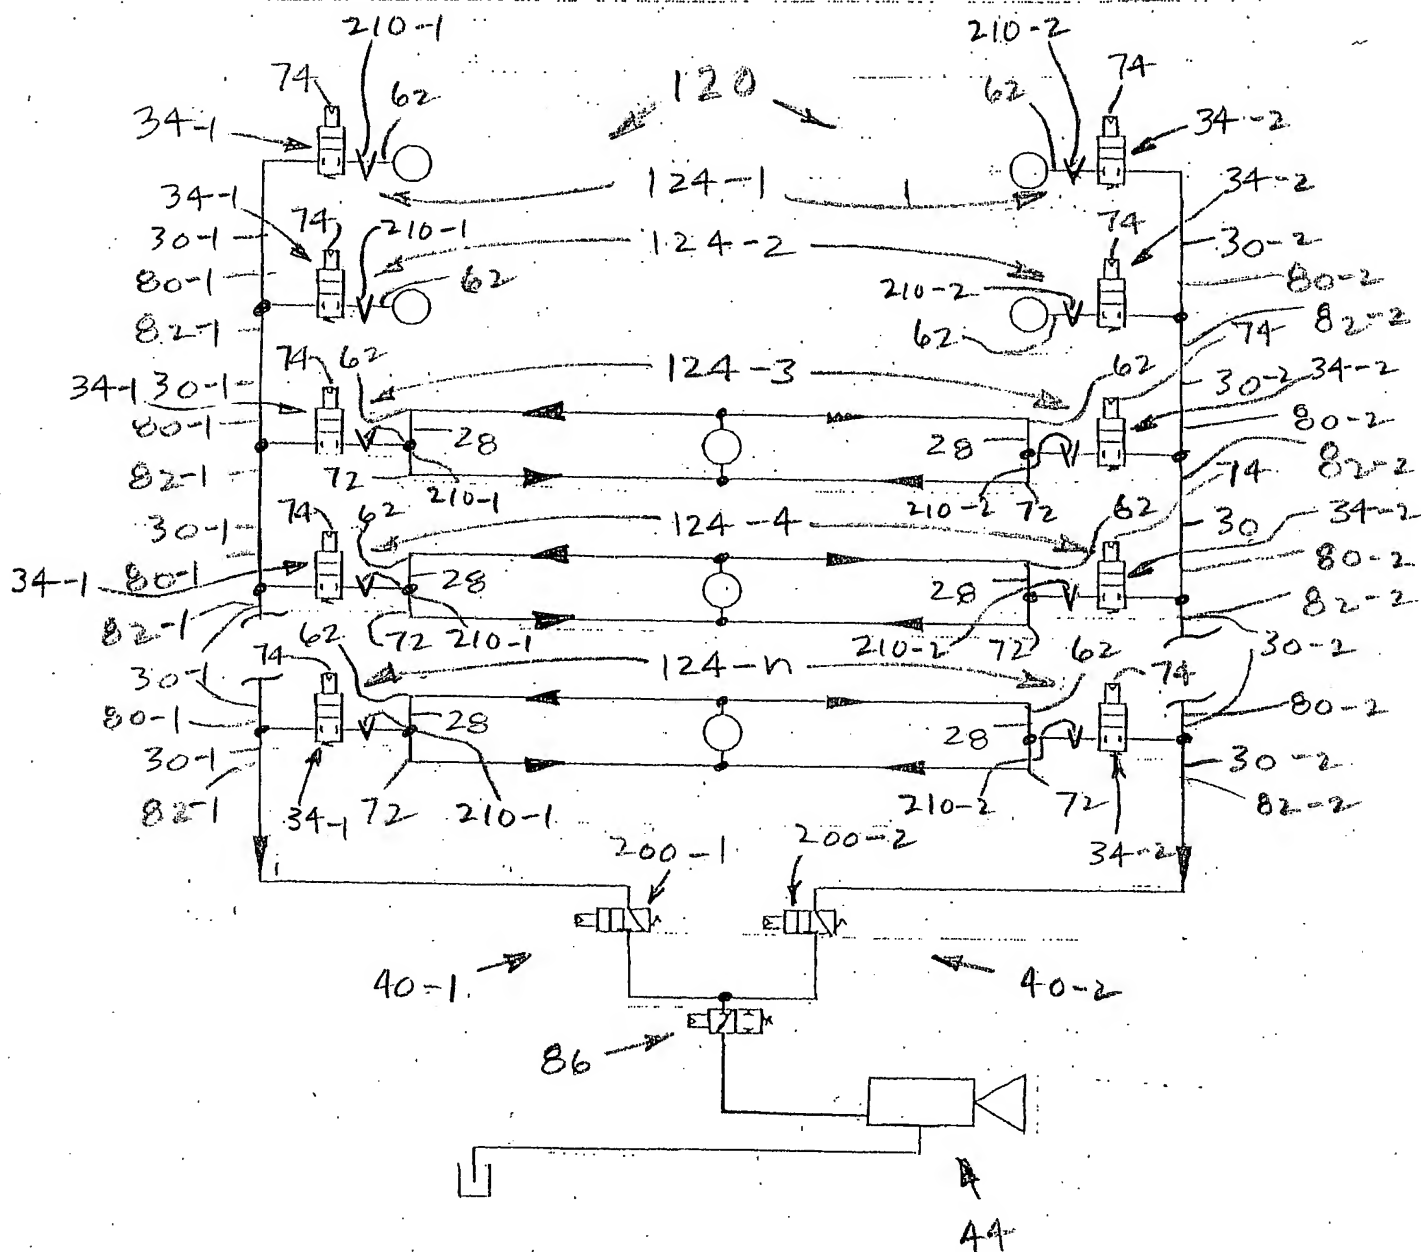 210-1 210-2
74 62 120 62 74
34-1 34-2
34-1 124-1 34-2
74 210-1 124-2 74
30-1 30-2
80-1 62 210-2 80-2
82-1 62 74 82-2
74 62 124-3 62
34-1 30-1 30-2 34-2
80-1 28 28 80-2
82-1 72 210-1 210-2 72 74 82-2
74 62 124-4 62
30-1 30 34-2
34-1 80-1 28 28 80-2
82-1 62 72 210-1 210-2 72 62 82-2
30-1 74 124-n 74 30-2
80-1 28 28 80-2
30-1 30-2
82-1 34-1 72 210-1 210-2 72 82-2
200-1 200-2 34-2
40-1 40-2
86
44